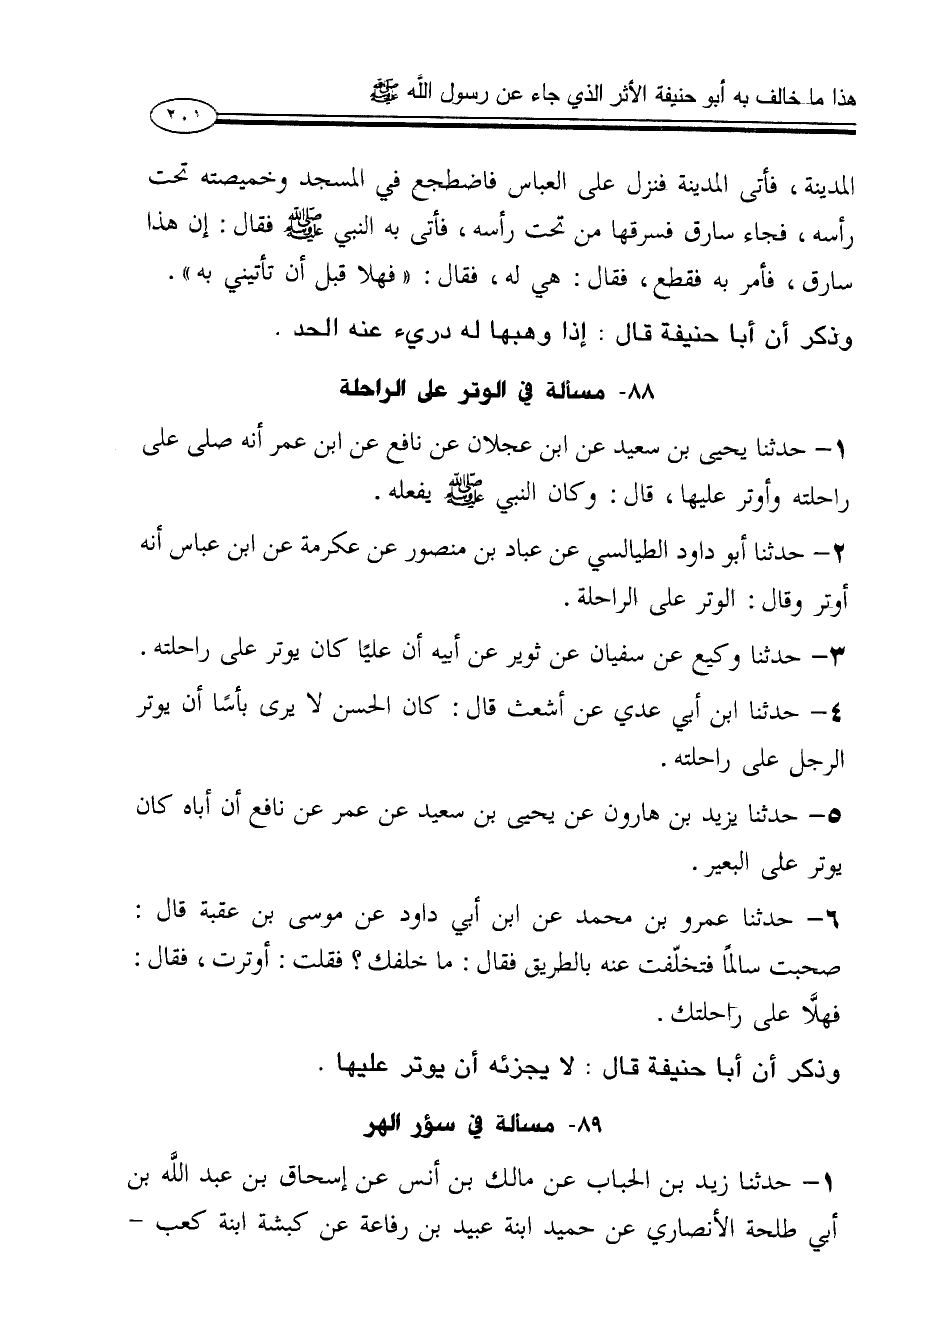 هذا ما خالف به أبو حنيفة الأثر الذي جاء عن رسول الله ﷺ
٢٠١
المدينة ، فأتى المدينة فنزل على العباس فاضطجع في المسجد وخميصته تحت
رأسه ، فجاء سارق فسرقها من تحت رأسه ، فأتى به النبي ﷺ فقال : إن هذا
سارق ، فأمر به فقطع ، فقال : هي له ، فقال : « فهلا قبل أن تأتيني به » .
وذكر أن أبا حنيفة قال : إذا وهبها له دريء عنه الحد .
٨٨- مسألة في الوتر على الراحلة
١- حدثنا يحيى بن سعيد عن ابن عجلان عن نافع عن ابن عمر أنه صلى على
راحلته وأوتر عليها ، قال : وكان النبي ﷺ يفعله .
٢- حدثنا أبو داود الطيالسي عن عباد بن منصور عن عكرمة عن ابن عباس أنه
أوتر وقال : الوتر على الراحلة .
٣- حدثنا وكيع عن سفيان عن ثوير عن أبيه أن عليًا كان يوتر على راحلته .
٤- حدثنا ابن أبي عدي عن أشعث قال : كان الحسن لا يرى بأسًا أن يوتر
الرجل على راحلته .
٥- حدثنا يزيد بن هارون عن يحيى بن سعيد عن عمر عن نافع أن أباه كان
يوتر على البعير .
٦- حدثنا عمرو بن محمد عن ابن أبي داود عن موسى بن عقبة قال :
صحبت سالمًا فتخلّفت عنه بالطريق فقال : ما خلفك ؟ فقلت : أوترت ، فقال :
فهلَّا على راحلتك .
وذكر أن أبا حنيفة قال : لا يجزئه أن يوتر عليها .
٨٩- مسألة في سؤر الهر
١- حدثنا زيد بن الحباب عن مالك بن أنس عن إسحاق بن عبد اللَّه بن
أبي طلحة الأنصاري عن حميد ابنة عبيد بن رفاعة عن كبشة ابنة كعب -